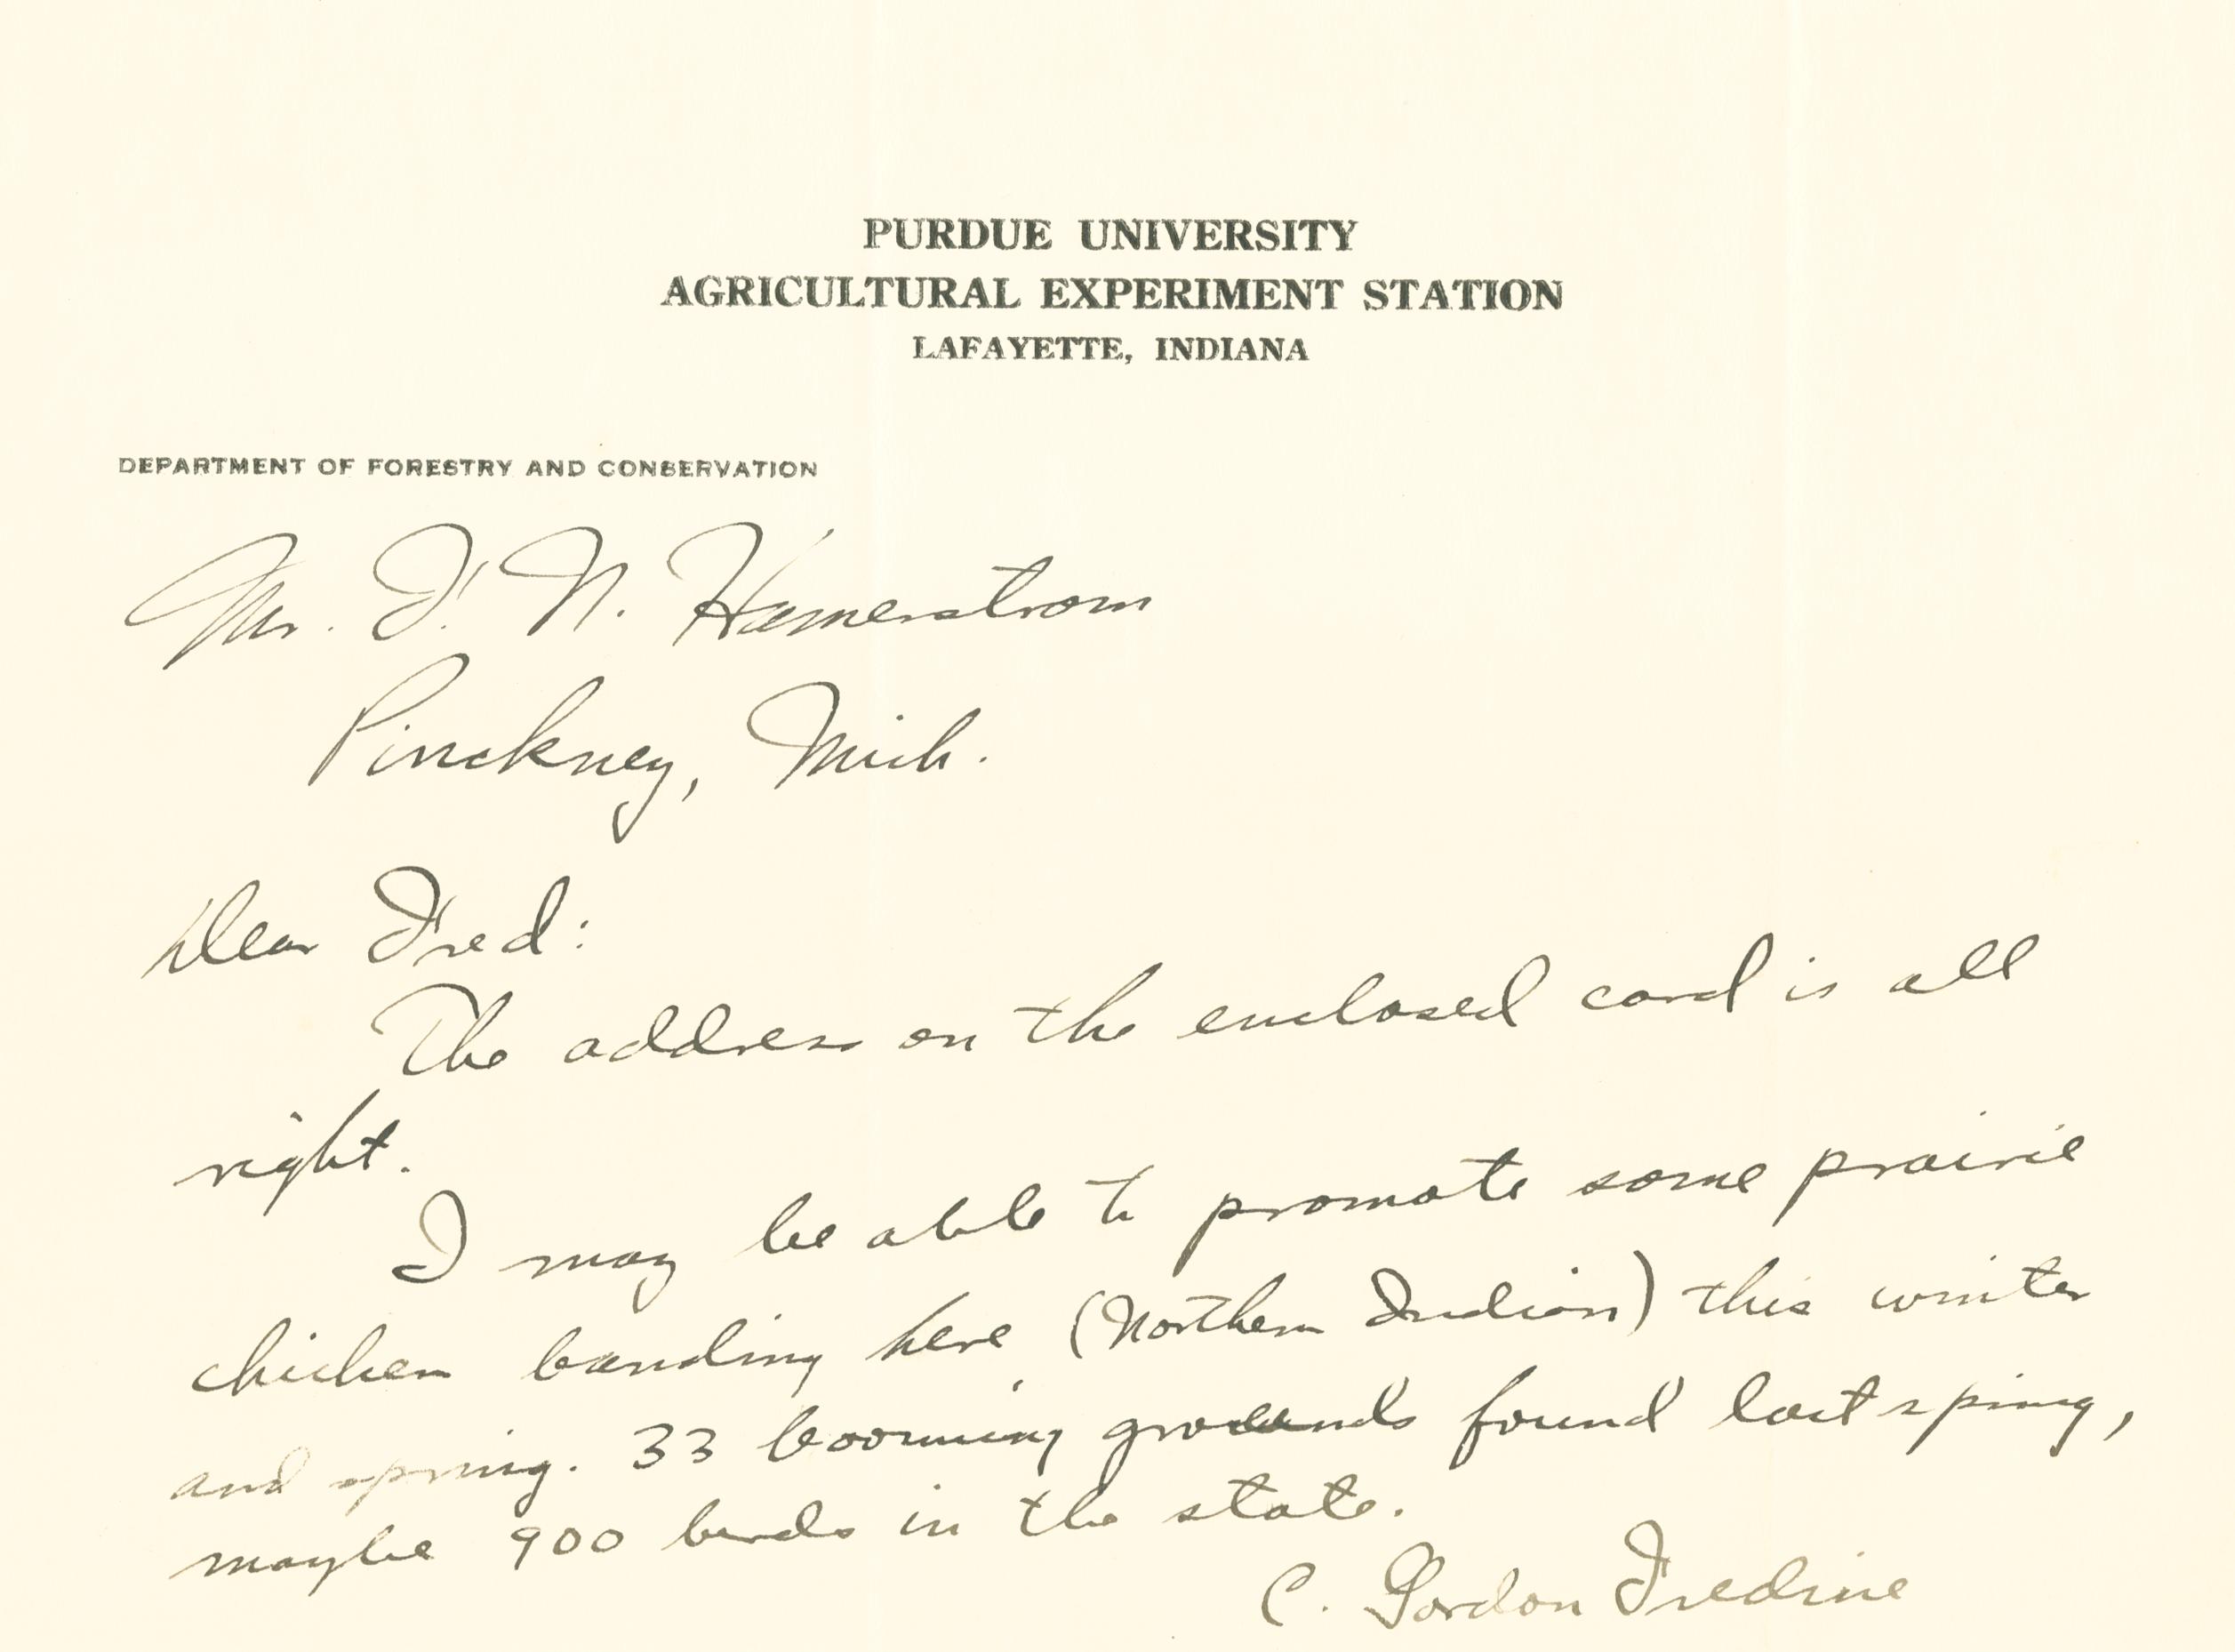 PURDUE UNIVERSITY
AGRICULTURAL EXPERIMENT STATION
LAFAYETTE, INDIANA
DEPARTMENT OF FORESTRY AND CONSERVATION
Mr. F. N. Hamerstrom
Pinckney, Mich.
Dear Fred:
The address on the enclosed card is all
right.
I may be able to promote some prairie
chicken banding here (Northern Indian) this winter
and spring. 33 booming grounds found last spring,
maybe 900 birds in the state.
C. Gordon Fredine